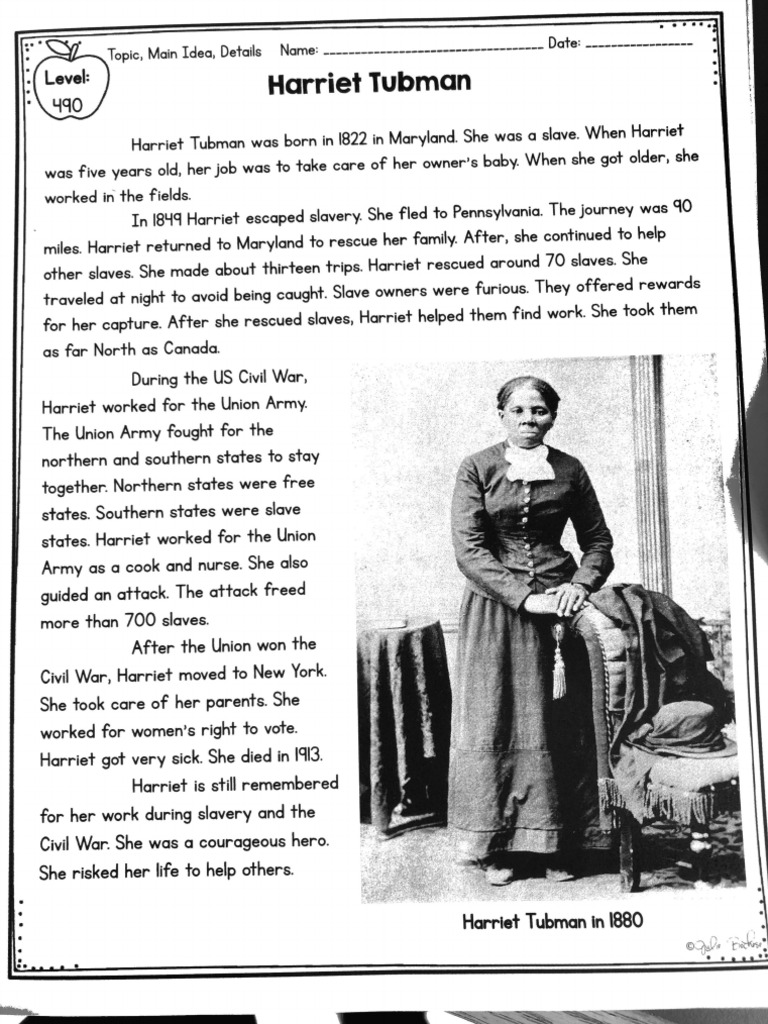 Topic, Main Idea, Details Name: ________________________________ Date: ________________
Level:
490
Harriet Tubman
Harriet Tubman was born in 1822 in Maryland. She was a slave. When Harriet
was five years old, her job was to take care of her owner's baby. When she got older, she
worked in the fields.
In 1849 Harriet escaped slavery. She fled to Pennsylvania. The journey was 90
miles. Harriet returned to Maryland to rescue her family. After, she continued to help
other slaves. She made about thirteen trips. Harriet rescued around 70 slaves. She
traveled at night to avoid being caught. Slave owners were furious. They offered rewards
for her capture. After she rescued slaves, Harriet helped them find work. She took them
as far North as Canada.
During the US Civil War,
Harriet worked for the Union Army.
The Union Army fought for the
northern and southern states to stay
together. Northern states were free
states. Southern states were slave
states. Harriet worked for the Union
Army as a cook and nurse. She also
guided an attack. The attack freed
more than 700 slaves.
After the Union won the
Civil War, Harriet moved to New York.
She took care of her parents. She
worked for women's right to vote.
Harriet got very sick. She died in 1913.
Harriet is still remembered
for her work during slavery and the
Civil War. She was a courageous hero.
She risked her life to help others.
Harriet Tubman in 1880
©